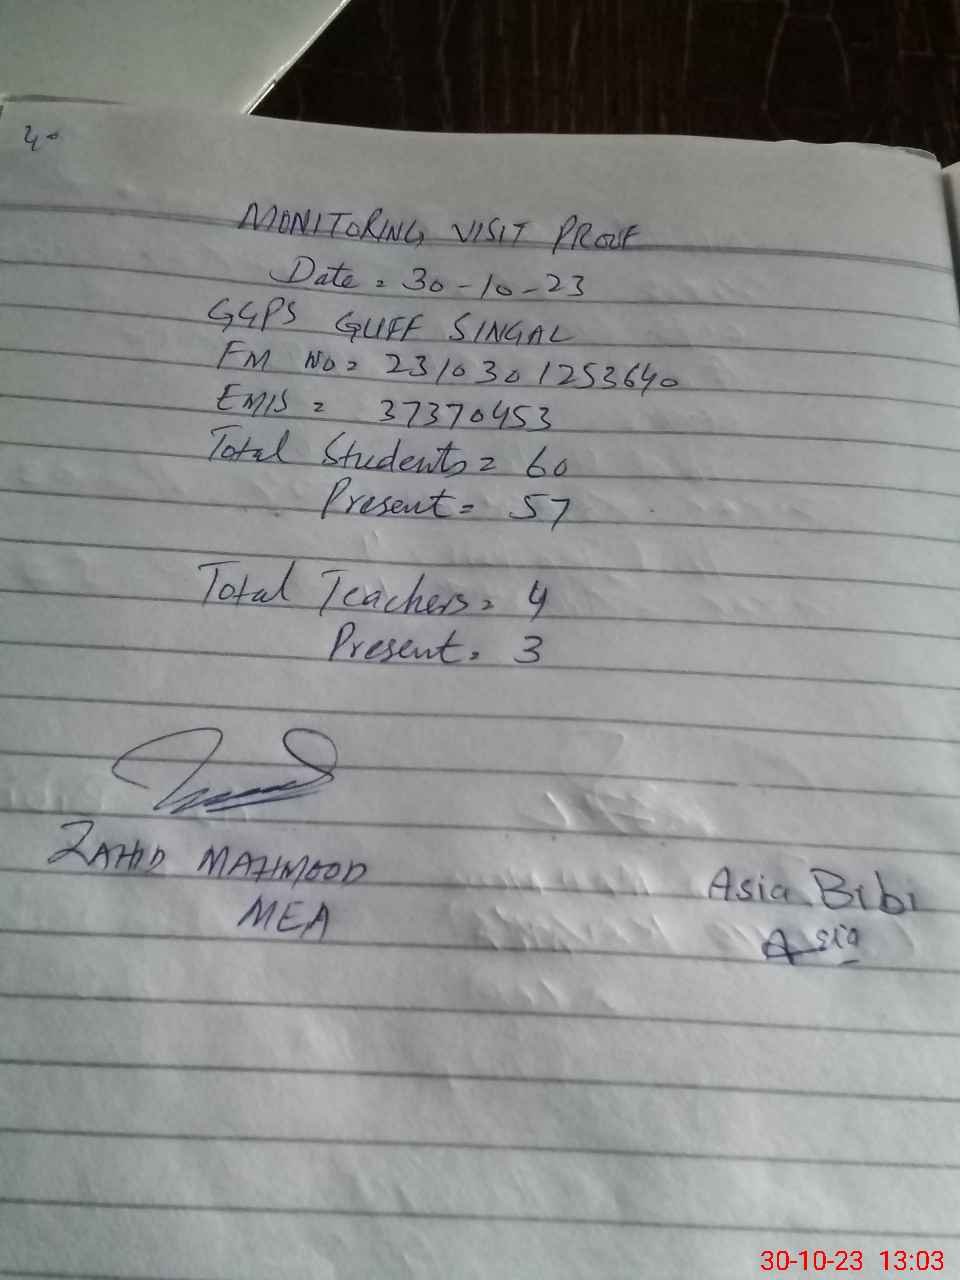 40
MONITORING VISIT PROUF
Date = 30-10-23
GGPS GUFF SINGAL
FM NO = 2310301253640
EMIS = 37370453
Total Students = 60
Present = 57
Total Teachers = 4
Present = 3
ZAHID MAHMOOD
MEA
Asia Bibi
Asia
30-10-23 13:03